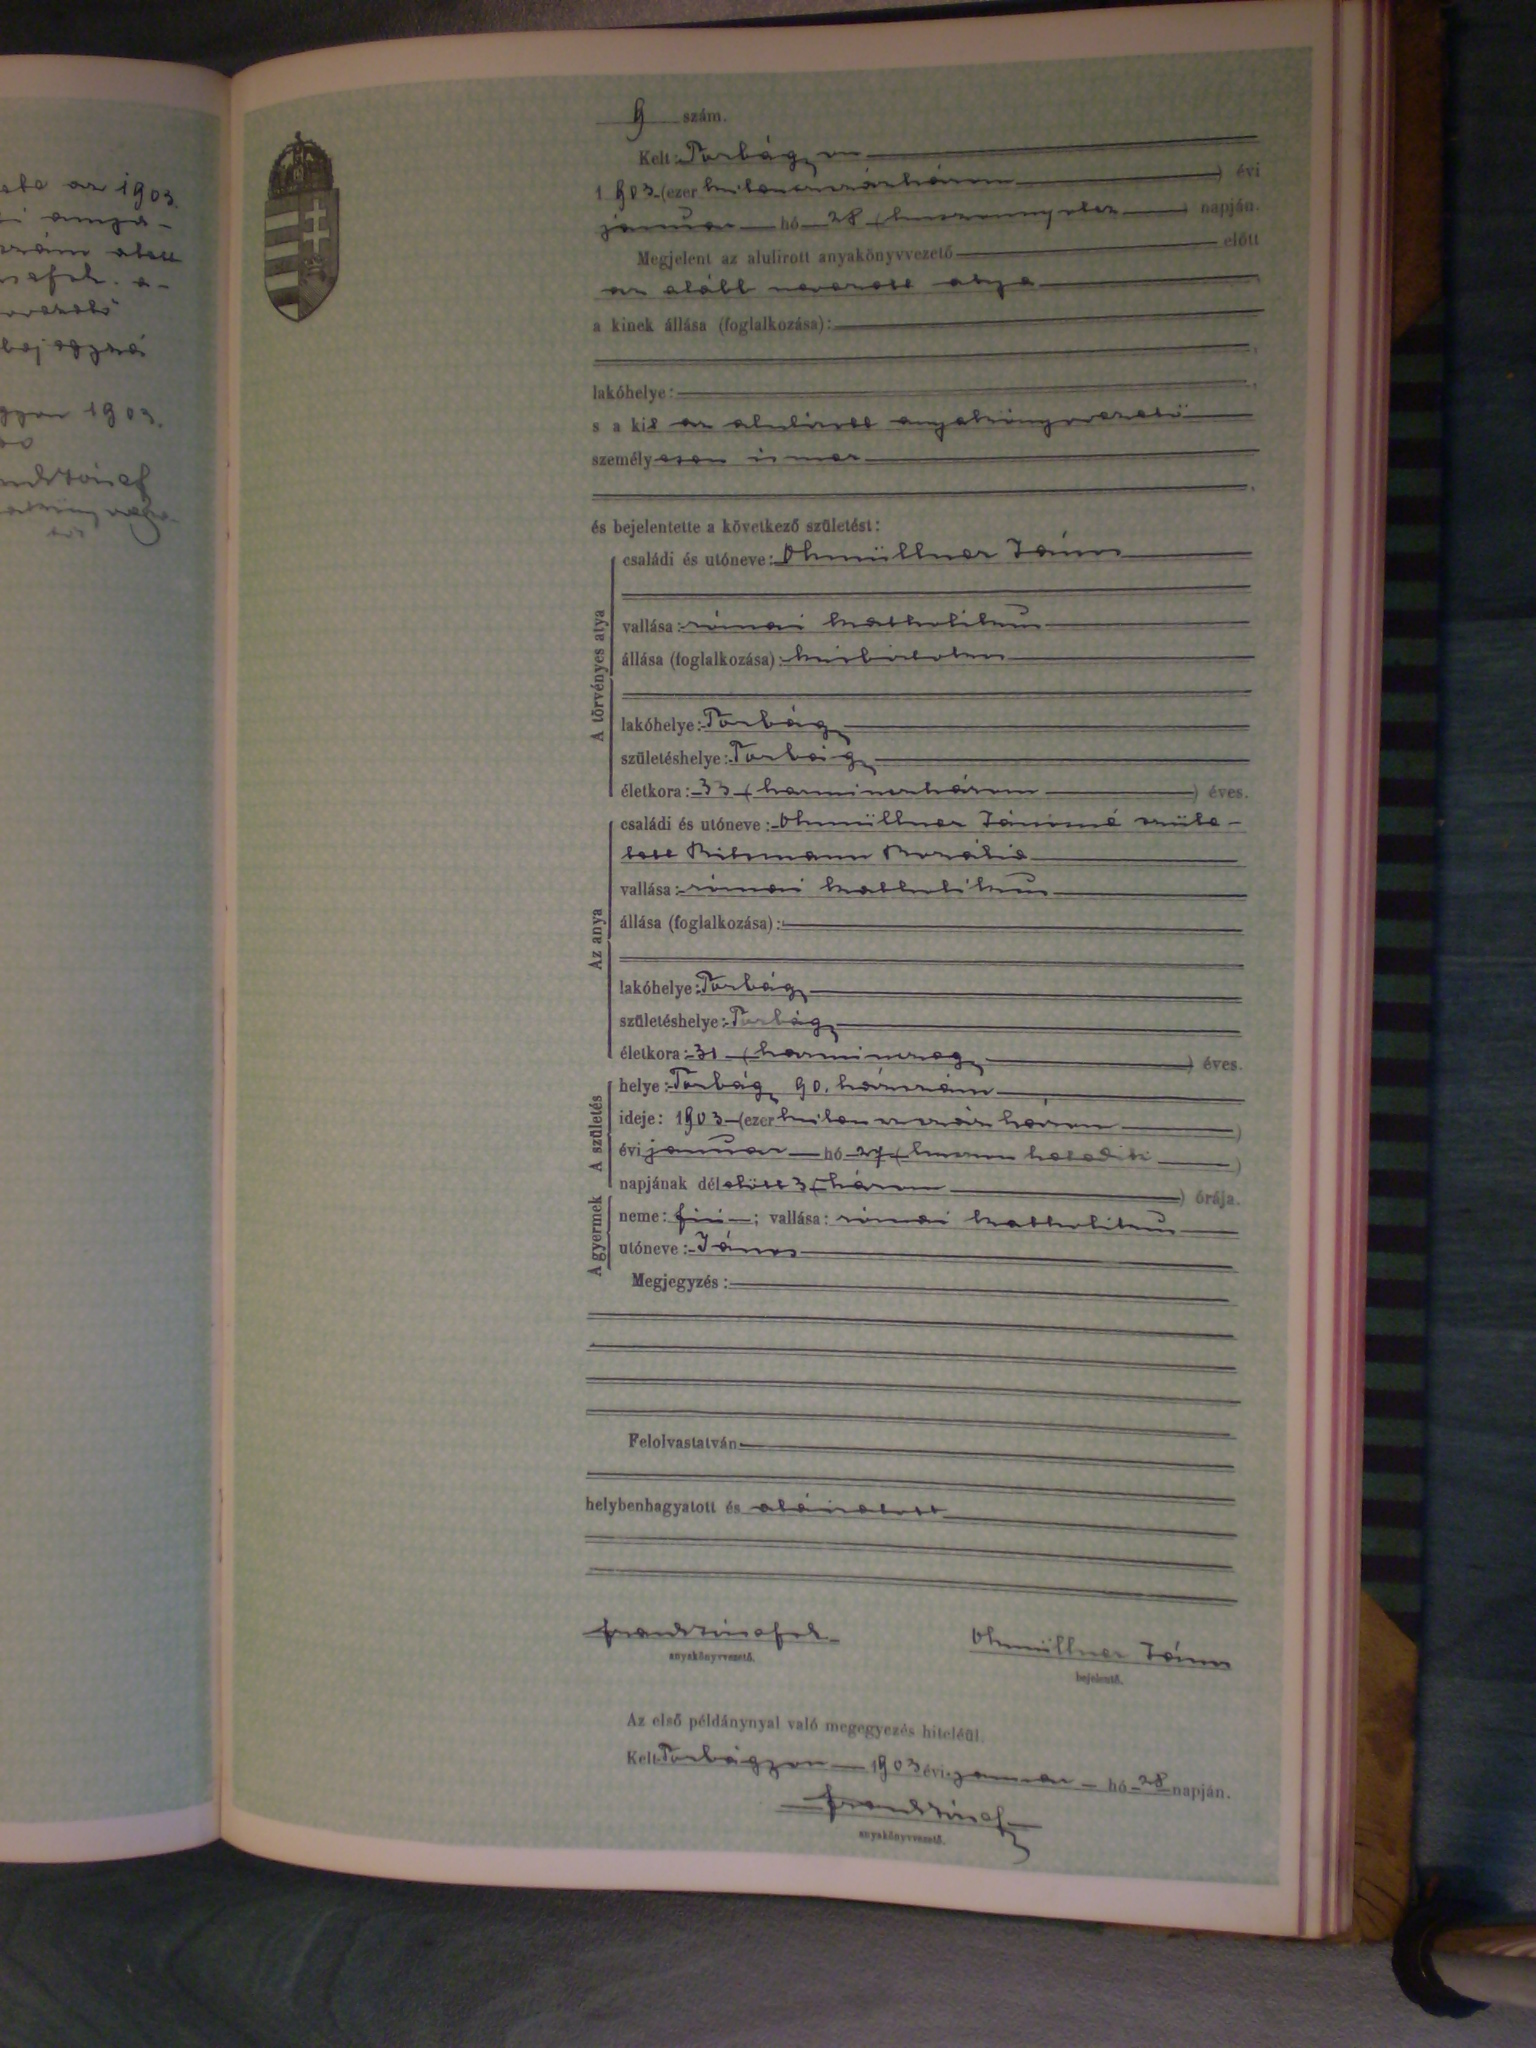 ete az 1903.
szám alatt
1903.
9 szám.
Kelt: Torbágyon
1903 (ezer kilencszázhárom) évi
januar hó 28 (huszonnyolcz) napján.
Megjelent az alulirott anyakönyvvezető előtt
az alább nevezett atya
a kinek állása (foglalkozása):
lakóhelye:
s a kit az alulirott anyakönyvvezető
személyesen ismer
és bejelentette a következő születést:
A törvényes atya
családi és utóneve: Ohmüllner János
vallása: római katholikus
állása (foglalkozása): kisbirtokos
lakóhelye: Torbágy
születéshelye: Torbágy
életkora: 33 (harminczhárom) éves.
Az anya
családi és utóneve: Ohmüllner Jánosné szüle-
tett Ritzmann Rozália
vallása: római katholikus
állása (foglalkozása):
lakóhelye: Torbágy
születéshelye: Torbágy
életkora: 31 (harminczegy) éves.
A születés
helye: Torbágy 90. házszám
ideje: 1903 (ezer kilenczszázhárom)
évi januar hó 27 (huszonhetedik)
napjának délelött 3 (három) órája.
A gyermek
neme: fiú; vallása: római katholikus
utóneve: János
Megjegyzés:
Felolvastatván
helybenhagyatott és aláiratott
anyakönyvvezető.
Ohmüllner János
bejelentő.
Az első példánynyal való megegyezés hiteléül.
Kelt Torbágyon 1903 évi januar hó 28 napján.
anyakönyvvezető.